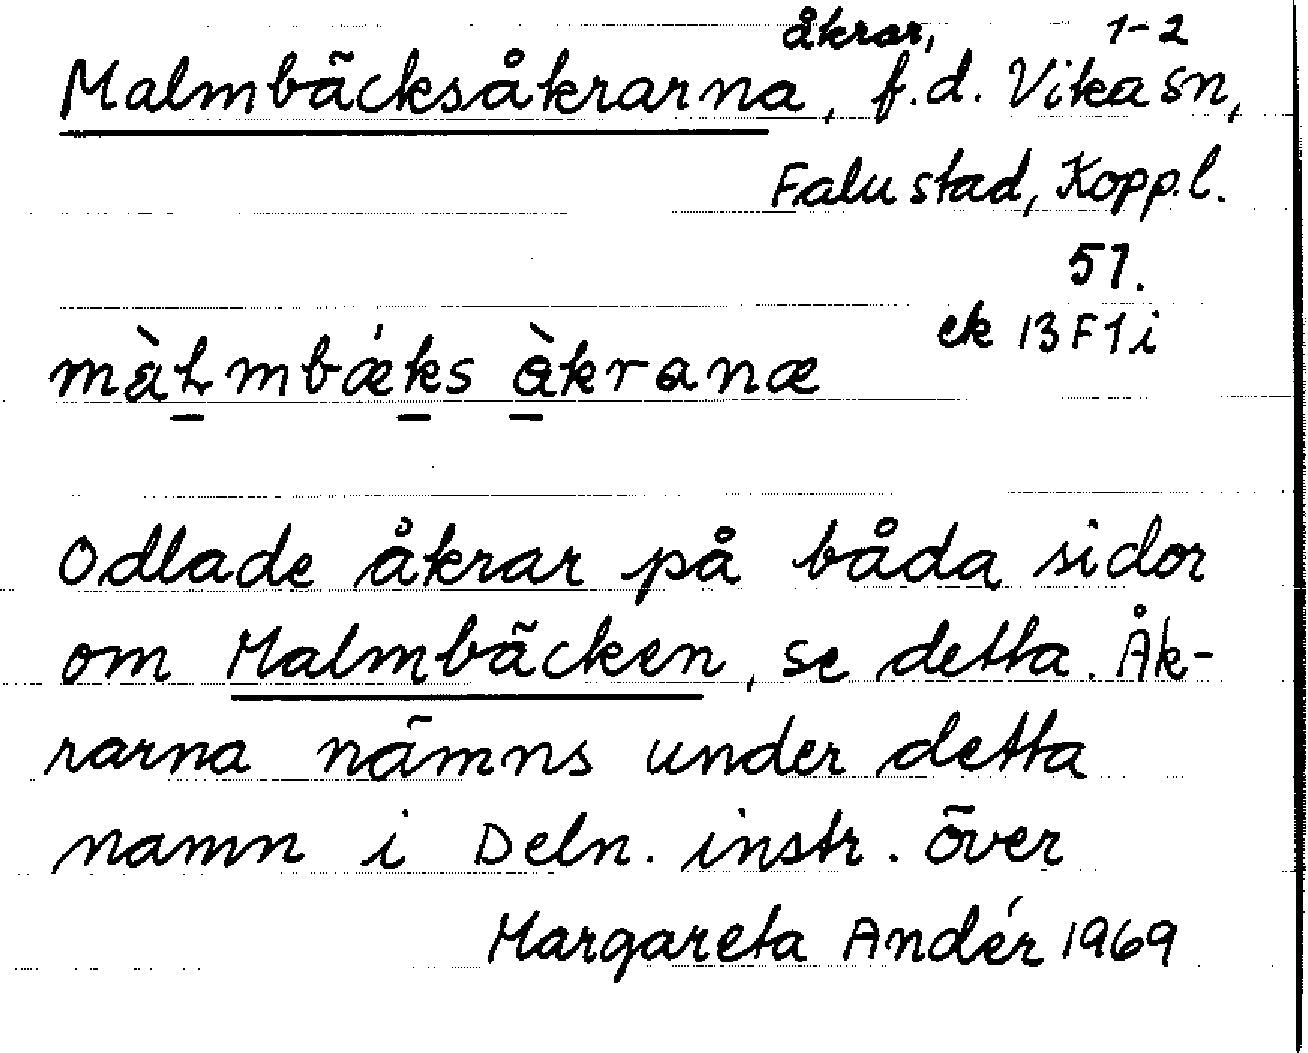 åkrar, 1-2
Malmbäcksåkrarna, f.d. Vika sn,
Falu stad, Kopp.l.
51.
ek 13F1i
màƚmbǽks åkranæ
Odlade åkrar på båda sidor
om Malmbäcken, se detta. Åk-
rarna nämns under detta
namn i Deln. instr. över
Margareta Andér 1969